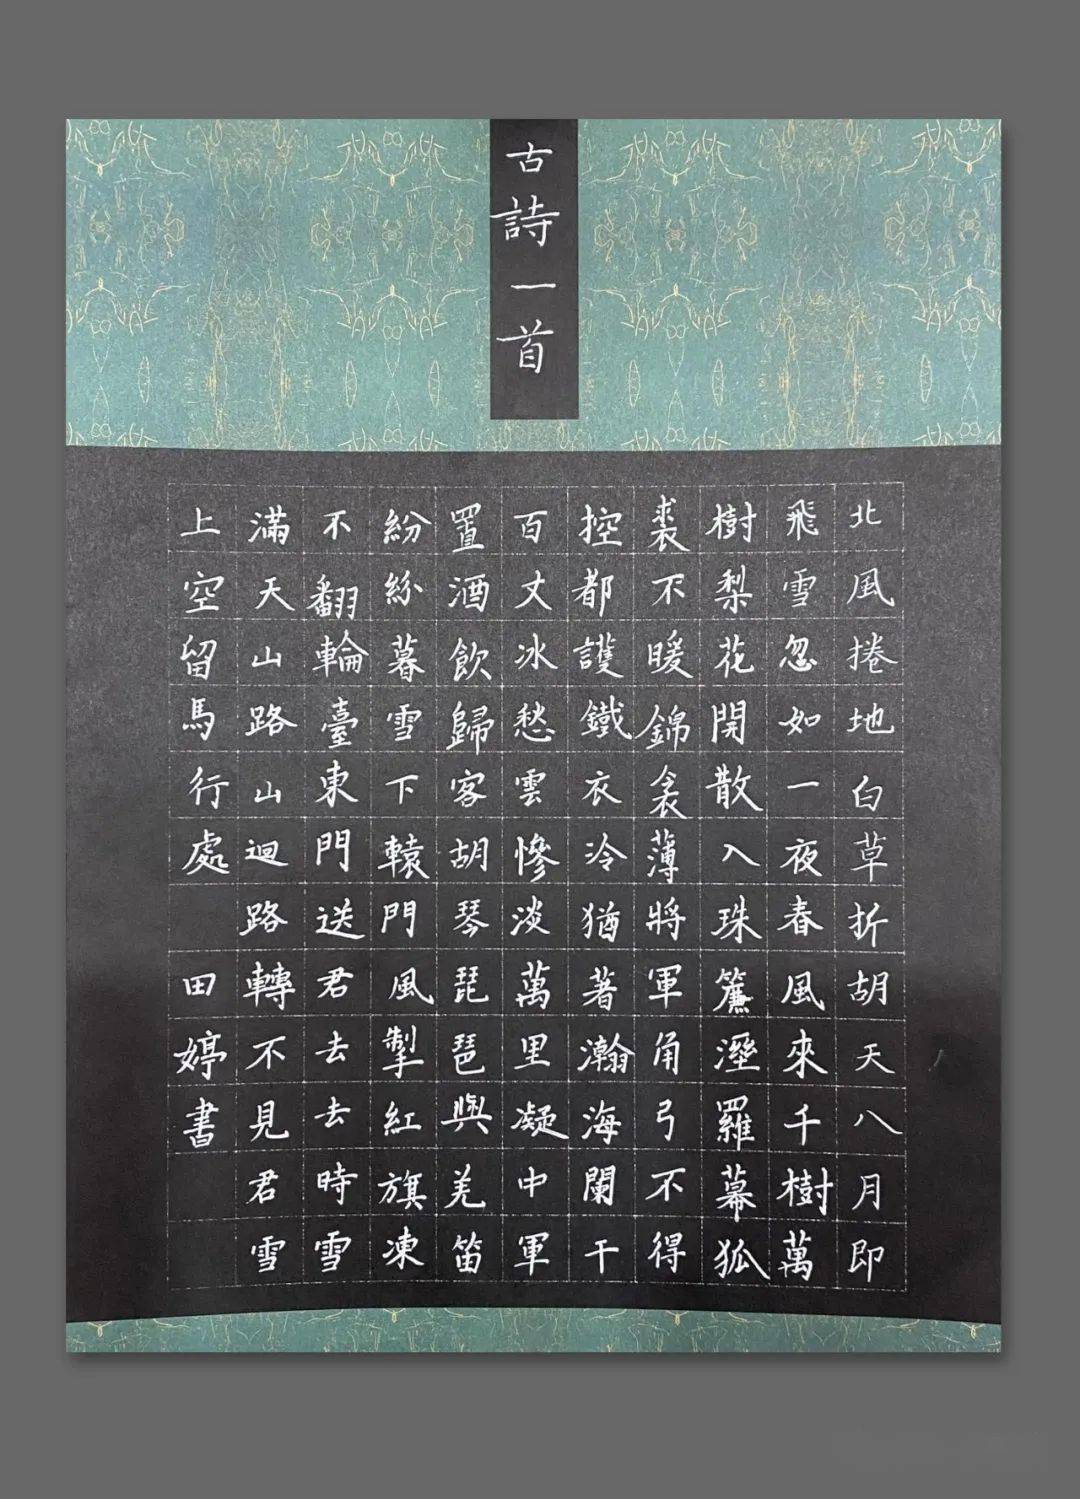 古詩一首
北風捲地白草折胡天八月即
飛雪忽如一夜春風來千樹萬
樹梨花開散入珠簾溼羅幕狐
裘不暖錦衾薄將軍角弓不得
控都護鐵衣冷猶著瀚海闌干
百丈冰愁雲慘淡萬里凝中軍
置酒飲歸客胡琴琵琶與羌笛
紛紛暮雪下轅門風掣紅旗凍
不翻輪臺東門送君去去時雪
滿天山路山迴路轉不見君雪
上空留馬行處 田婷書